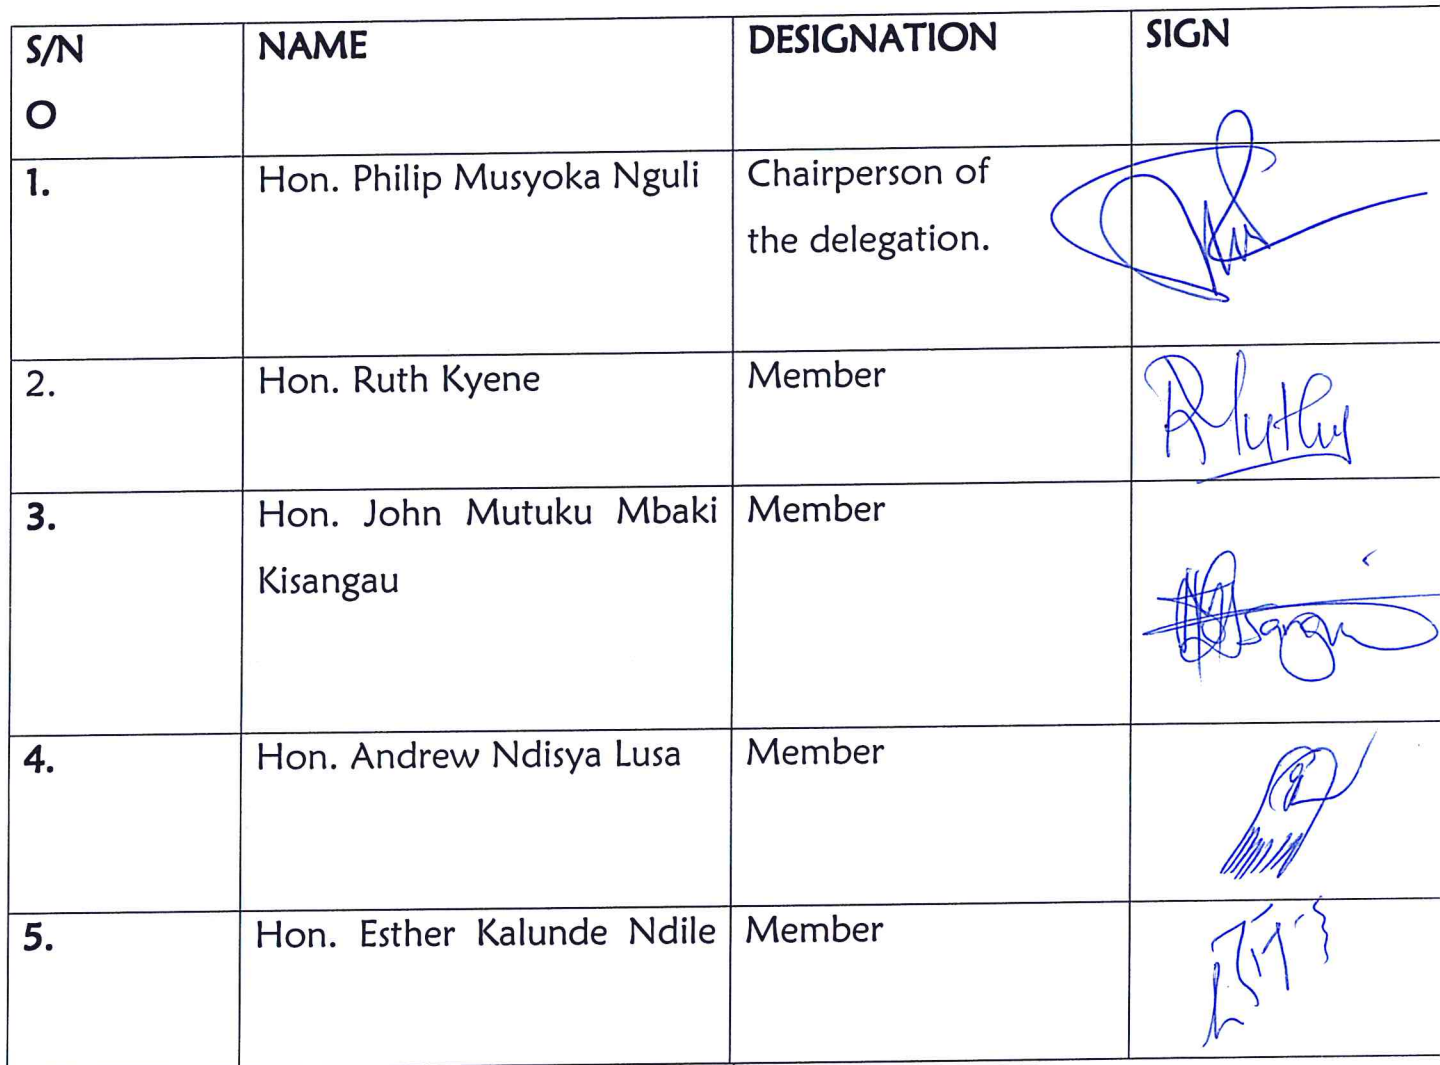 S/N NAME DESIGNATION SIGN
O
1. Hon. Philip Musyoka Nguli Chairperson of
the delegation.
2. Hon. Ruth Kyene Member
3. Hon. John Mutuku Mbaki Member
Kisangau
4. Hon. Andrew Ndisya Lusa Member
5. Hon. Esther Kalunde Ndile Member